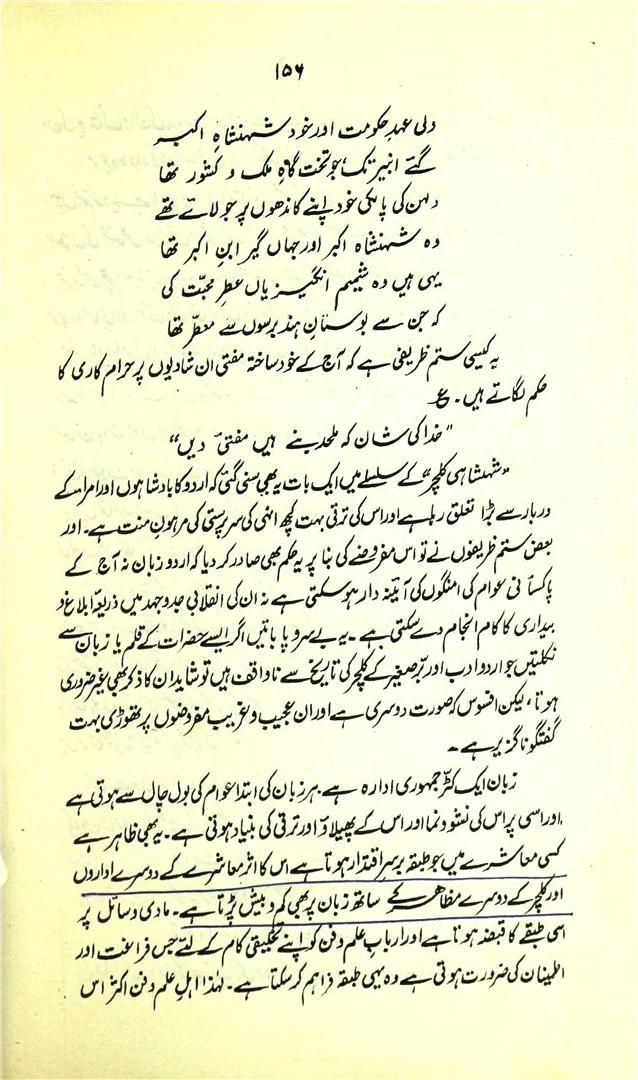 ۱۵۶
ولی عہدِ حکومت اور خود شہنشاہِ اکبر
گئے انبیر تک، جو تخت گاہِ ملک و کشور تھا
دلہن کی پالکی خود اپنے کاندھوں پر جو لائے تھے
وہ شہنشاہ اکبر اور جہاں گیر ابنِ اکبر تھا
یہی ہیں وہ شمیم انگیزیاں عطرِ محبّت کی
کہ جن سے بوستانِ ہند برسوں سے معطّر تھا
یہ کیسی ستم ظریفی ہے کہ آج کے خود ساختہ مفتی ان شادیوں پر حرام کاری کا
حکم لگاتے ہیں۔ ع
"خدا کی شان کہ ملحد بنے ہیں مفتیٔ دیں"
"شہنشاہی کلچر" کے سلسلے میں ایک بات یہ بھی سنی گئی کہ اردو کا بادشاہوں اور امراء کے
دربار سے بڑا تعلق رہا ہے اور اس کی ترقی بہت کچھ انہی کی سرپرستی کی مرہونِ منت ہے۔ اور
بعض ستم ظریفوں نے تو اس مفروضے کی بنا پر یہ حکم بھی صادر کر دیا کہ اردو زبان نہ آج کے
پاکستانی عوام کی امنگوں کی آئینہ دار ہو سکتی ہے نہ ان کی انقلابی جدوجہد میں ذریعۂ ابلاغ و
بیداری کا کام انجام دے سکتی ہے۔ یہ بے سروپا باتیں اگر ایسے حضرات کے قلم یا زبان سے
نکلتیں جو اردو ادب اور برّصغیر کے کلچر کی تاریخ سے ناواقف ہیں تو شاید ان کا ذکر بھی غیر ضروری
ہوتا، لیکن افسوس کہ صورت دوسری ہے اور ان عجیب و غریب مفروضوں پر تھوڑی بہت
گفتگو ناگزیر ہے۔
زبان ایک کٹّر جمہوری ادارہ ہے۔ ہر زبان کی ابتدا عوام کی بول چال سے ہوتی ہے
اور اسی پر اس کی نشوونما اور اس کے پھیلاؤ اور ترقی کی بنیاد ہوتی ہے۔ یہ بھی ظاہر ہے
کسی معاشرے میں جو طبقہ برسرِ اقتدار ہوتا ہے اس کا اثر معاشرے کے دوسرے اداروں
اور کلچر کے دوسرے مظاہر کے ساتھ زبان پر بھی کم و بیش پڑتا ہے۔ مادی وسائل پر
اسی طبقے کا قبضہ ہوتا ہے اور اربابِ علم و فن کو اپنے تخلیقی کام کے لئے جس فراغت اور
اطینان کی ضرورت ہوتی ہے وہ یہی طبقہ فراہم کر سکتا ہے۔ لہٰذا اہلِ علم و فن اکثر اس